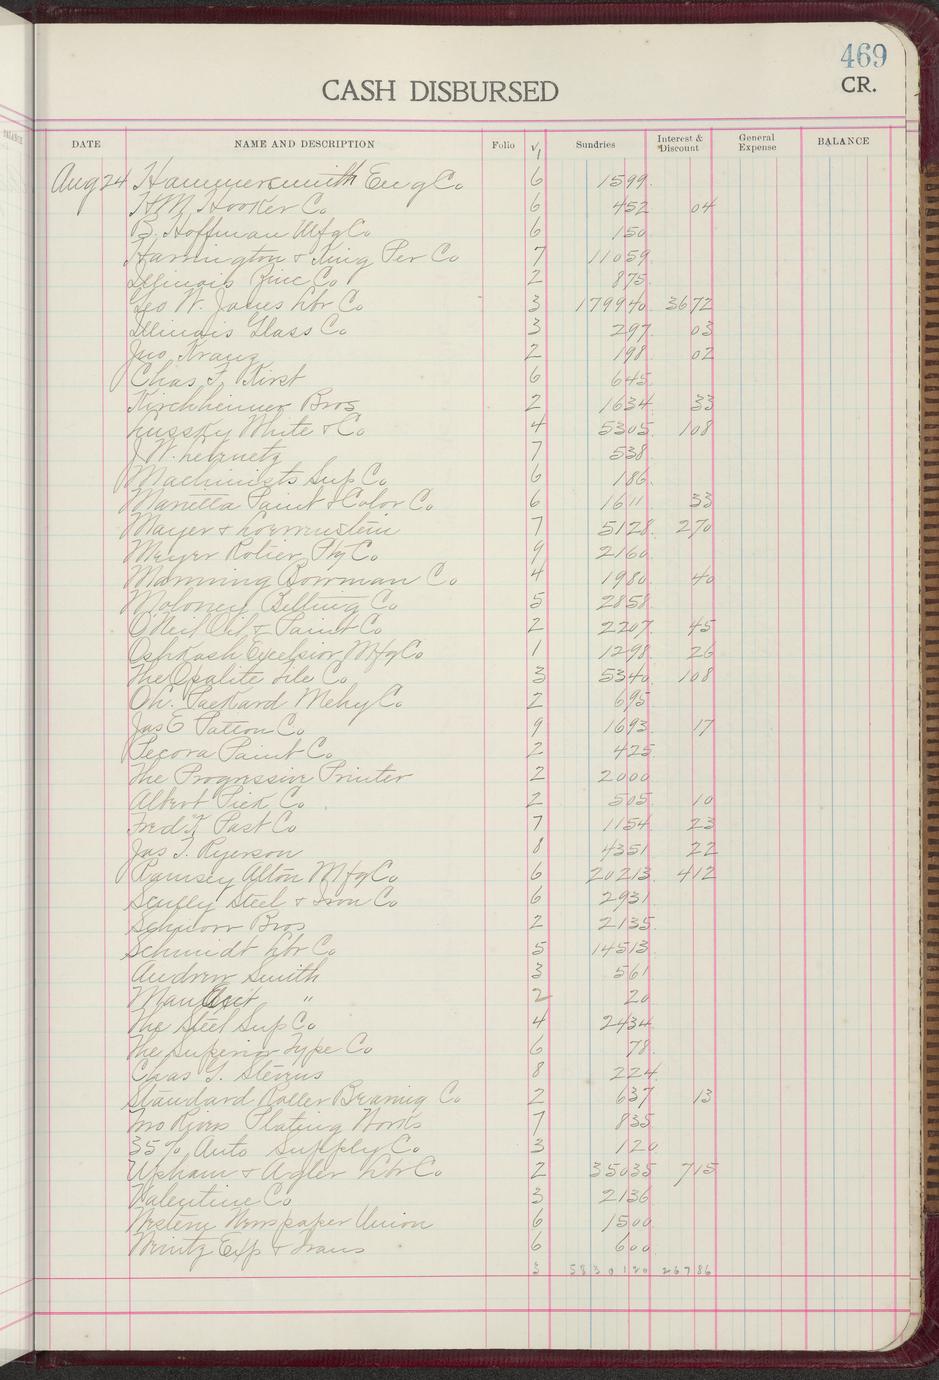 469
CR.
CASH DISBURSED
DATE NAME AND DESCRIPTION Folio √1 Sundries Interest & Discount General Expense BALANCE
Aug 24 Hammersmith Eng Co 6 1599
H M Hooker Co 6 452 04
B. Hoffman Mfg Co 6 150
Harrington & King Per Co 7 11059
Illinois Zinc Co 2 875
Geo W. Jones Lbr Co 3 179940 3672
Illinois Glass Co 3 297 03
Jno Kranz 2 198 02
Chas F. Kirst 6 645
Kirchheimer Bros 2 1634 33
Lussky White & Co 4 5305 108
J W. 7 538
Machinists Sup Co 6 186
Marietta Paint & Color Co 6 1611 33
Mayer & Loewenstein 7 5128 270
Meyer Ptg Co 9 2160
Manning Bowman Co 4 1980 40
Moloney Belting Co 5 2858
O'Neil Oil & Paint Co 2 2207 45
Oshkosh Excelsior Mfg Co 1 1298 26
The Opalite Tile Co 3 5340 108
Packard Mchy Co 2 695
Jas E Patton Co 9 1693 17
Pecora Paint Co 2 425
The Progressive Printer 2 2000
Albert Pick Co 2 505 10
Fred K Post Co 7 1154 23
Jas T. Ryerson 8 4351 22
Ramsey Alton Mfg Co 6 20213 412
Scully Steel & Iron Co 6 2931
Schnorr Bros 2 2135
Schmidt Lbr Co 5 14513
Andrew Smith 3 561
" 2 20
The Steel Sup Co 4 2434
The Superior Type Co 6 78
Chas T. Stevens 8 224
Standard Roller Bearing Co 2 637 13
Plating Works 7 835
35% Auto Supply Co 3 120
Upham & Agler Lbr Co 2 35035 715
Valentine Co 3 2136
Western Newspaper Union 6 1500
Wentz Exp & Trans 6 600
3 5830120 26786